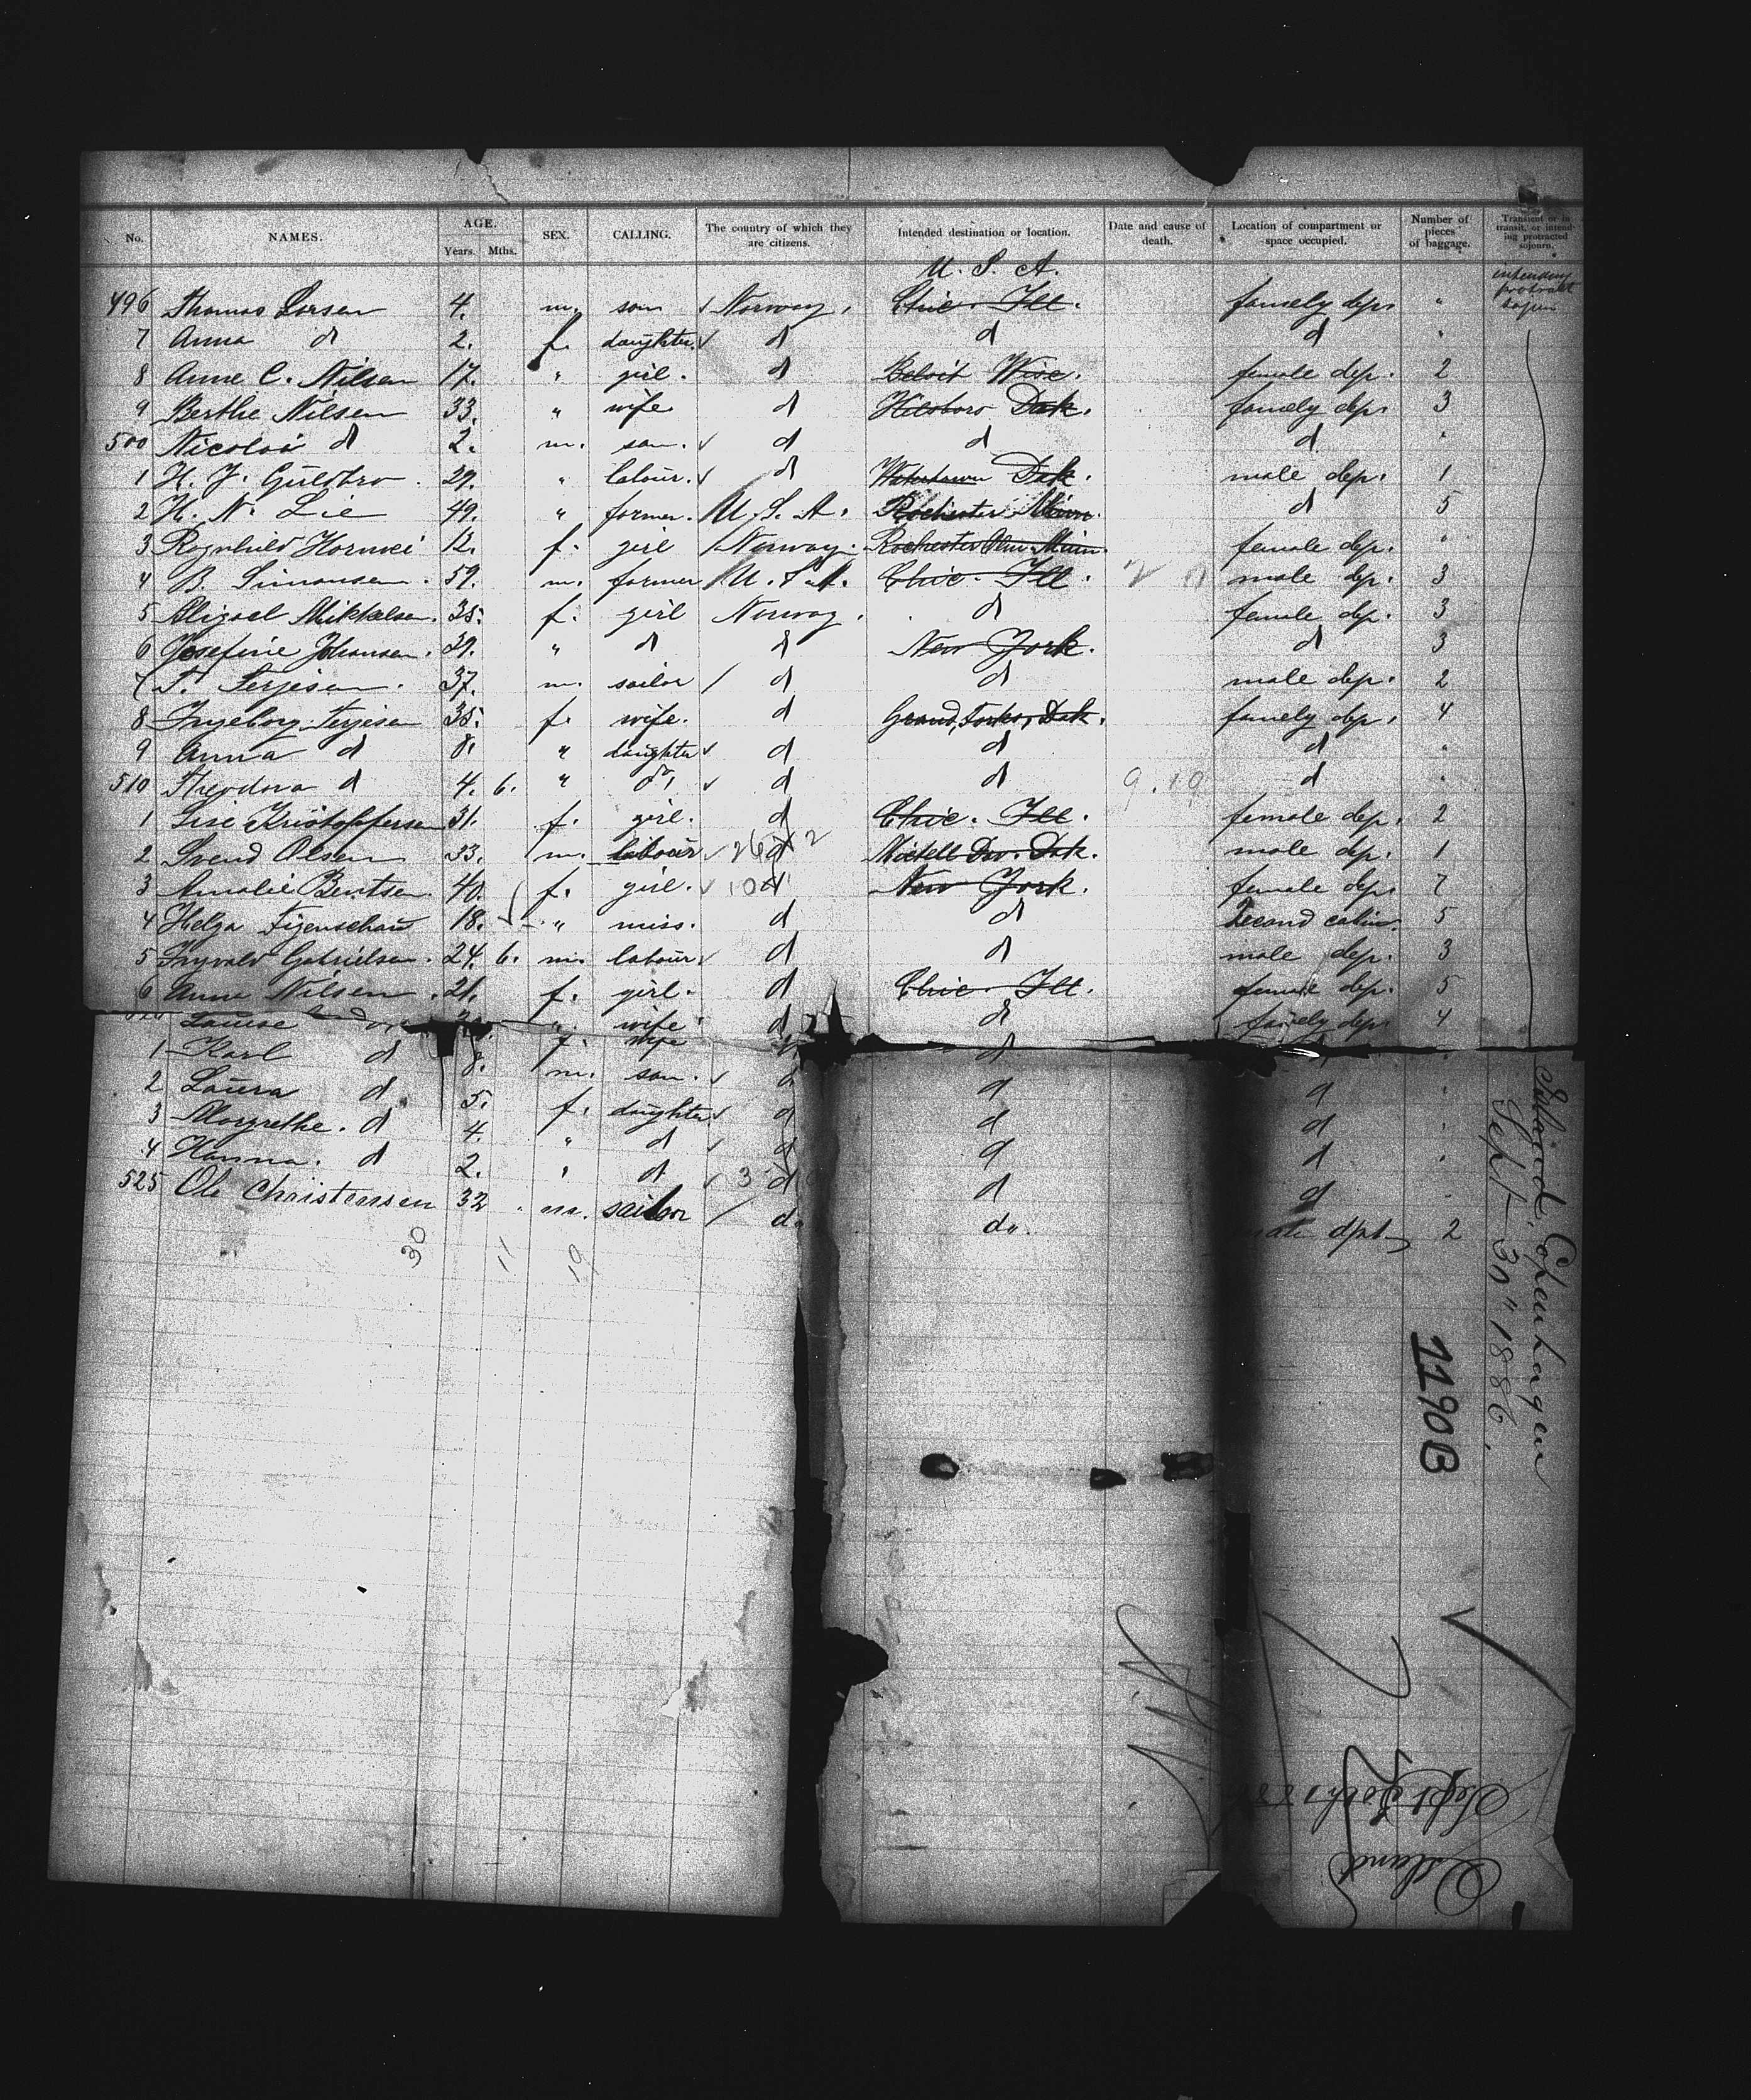 No. NAMES. AGE. Years. Mths. SEX. CALLING. The country of which they are citizens. Intended destination or location. Date and cause of death. Location of compartment or space occupied. Number of pieces of baggage. Transient or in transit, or intending protracted sojourn.
U. S. A.
496 Thomas Larsen 4. m. son Norway. Chic. Ill. famely dep. "
7 Anna d 2. f. daughter. d d d "
8 Anne C. Nilsen 17. " girl. d Beloit Wisc. female dep. 2
9 Berthe Nilsen 33. " wife d Hilsboro Dak. famely dep. 3
500 Nicolai d 2. m. son. d d d "
1 H. J. Guldbro. 29. " labour. d Watertown Dak. male dep. 1
2 H. N. Lie 49. " farmer. U. S. A. Rochester Minn. d 5
3 Ragnhild Hornvei 12. f. girl Norway. Rochester Minn. female dep. "
4 B. Simonsen. 59. m. farmer U. S. A. Chic. Ill. male dep. 3
5 Abigael Mikkelsen. 35. f. girl Norway. d female dep. 3
6 Josefine Johansen. 39. " d d New York. d 3
7 T. Terjesen. 37. m. sailor / d d male dep. 2
8 Ingeborg Terjesen 35. f. wife. d Grand Forks, Dak. famely dep. 4
9 Anna d 8. " daughter d d d "
510 Theodora d 4. 6. " do d d d "
1 Lise Kristoffersen 31. f. girl. d Chic. Ill. female dep. 2
2 Svend Olsen 33. m. labour d Mickell Dak. male dep. 1
3 Amalie Bentsen. 40. f. girl. d New York. female dep. 7
4 Helga Figenschau 18. " miss. d d Second cabin. 5
5 Ingvald Gabrielsen. 24. 6. m. labour d d male dep. 3
6 Anna Nilsen. 21. f. girl. d Chic. Ill. female dep. 5
Louise wife d d famely dep. 4
1 Karl d 8. m. son. d d
2 Laura d 5. f. daughter d d d
3 Margrethe. d 4. " d d d d
4 Hanna. d 2. " d d d d
525 Ole Christensen 32 m. sailor / do do. dpt 2
30 11 19
Island, Copenhagen
Sept 30" 1886.
1190B
Sept 30th
Island